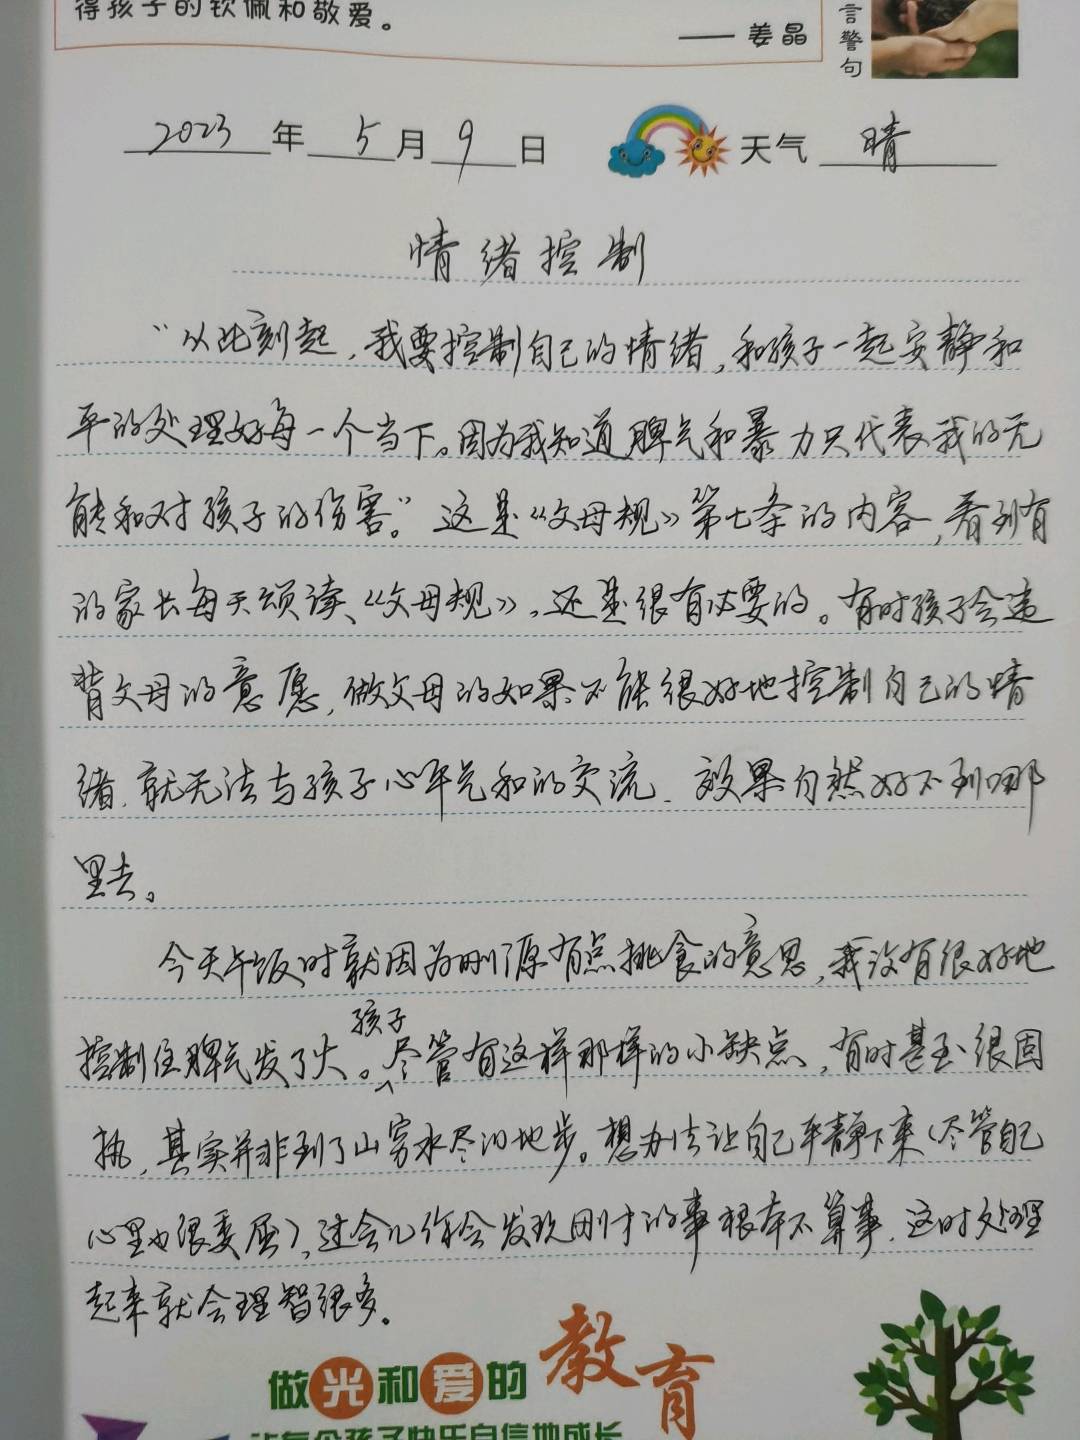 得孩子的钦佩和敬爱。
—— 姜晶
言警句
2023年5月9日 天气 晴
情绪控制
“从此刻起，我要控制自己的情绪，和孩子一起安静和
平的处理好每一个当下。因为我知道脾气和暴力只代表我的无
能和对孩子的伤害。”这是《父母规》第七条的内容，看到有
的家长每天颂读《父母规》，还是很有必要的。有时孩子会违
背父母的意愿，做父母的如果不能很好地控制自己的情
绪，就无法与孩子心平气和的交流，效果自然好不到哪
里去。
今天午饭时就因为刪源有点挑食的意思，我没有很好地
控制住脾气发了火。孩子尽管有这样那样的小缺点，有时甚至很固
执，其实并非到了山穷水尽的地步。想办法让自己平静下来（尽管自己
心里也很委屈），过会儿你会发现刚才的事根本不算事，这时处理
起来就会理智很多。
做光和爱的教育
让每个孩子快乐自信地成长